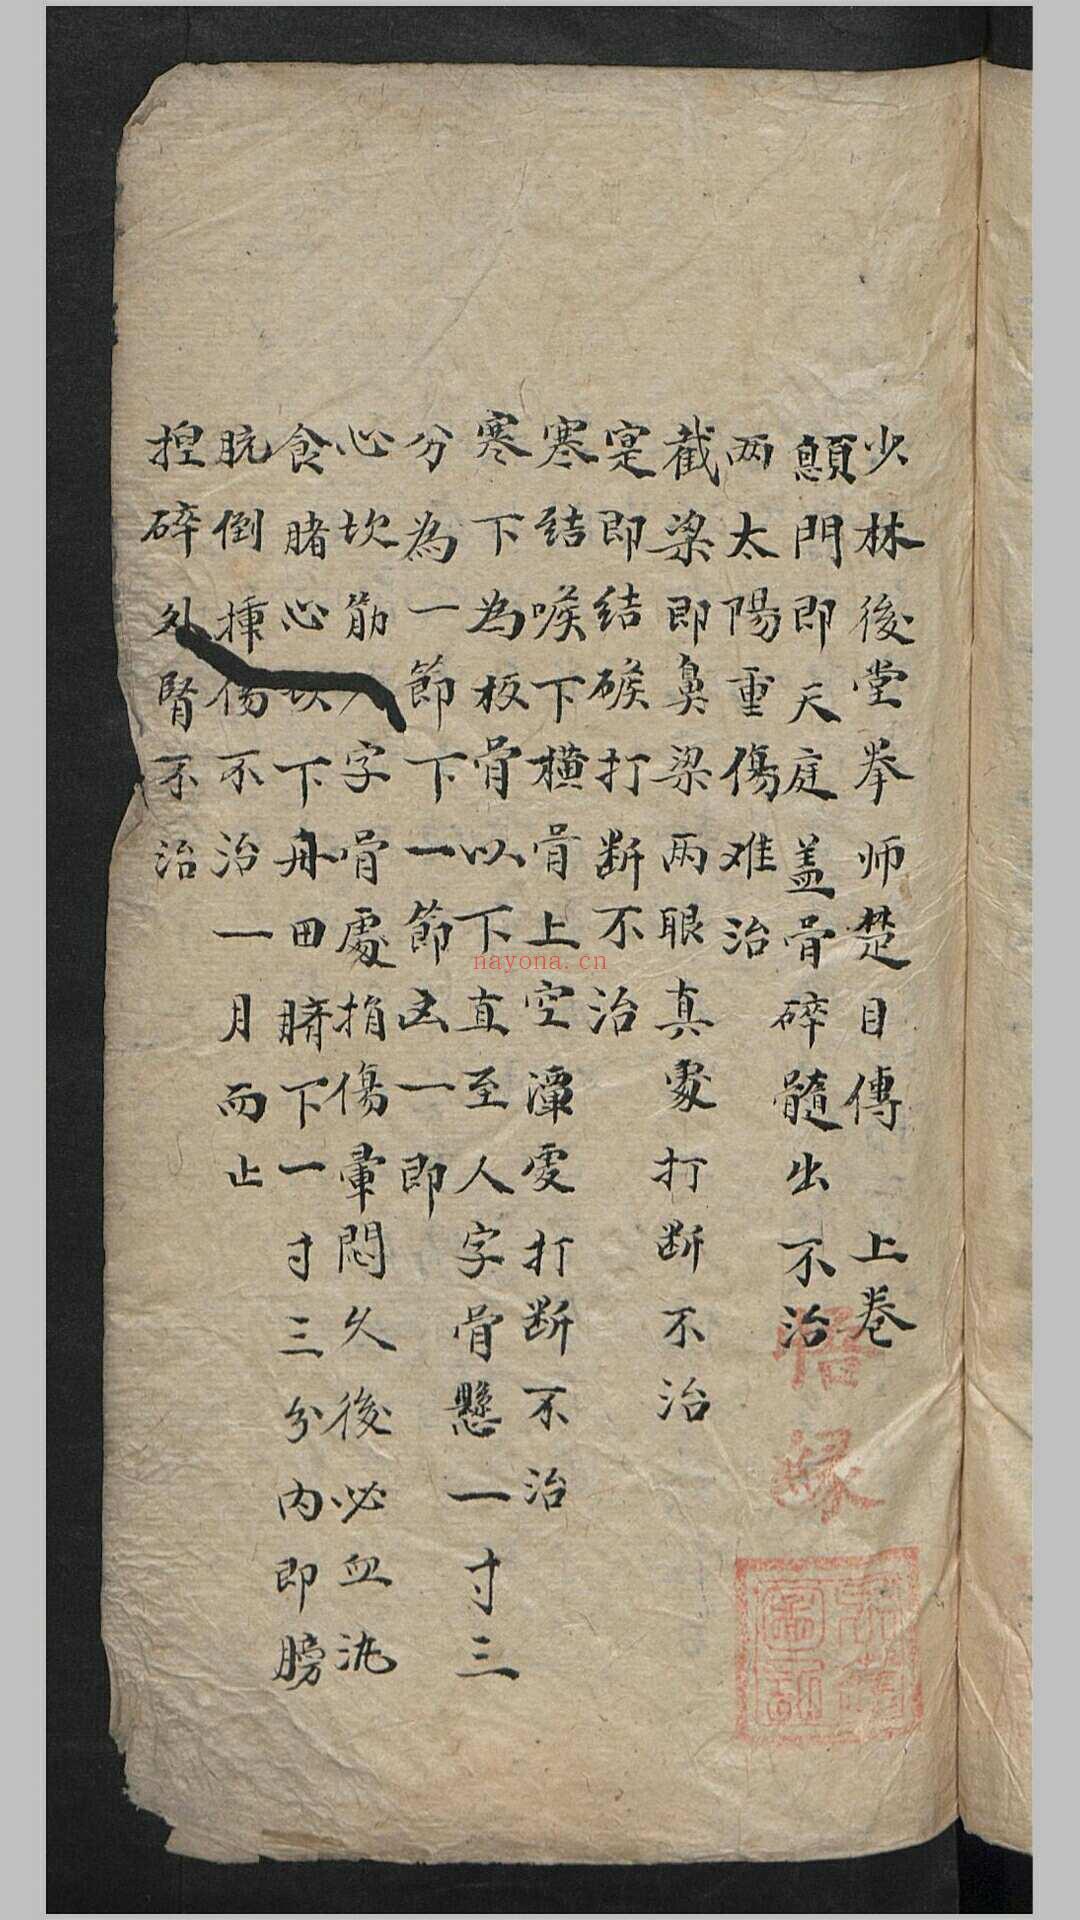 少林後堂拳师楚目傳 上卷
顖門即天庭盖骨碎髓出不治
两太陽重傷难治
截梁即鼻梁两眼真處打断不治
寔即結䫛打断不治
寒結喉下横骨上空潭处打断不治
寒下為板骨以下直至人字骨懸一寸三
分為一節下一節凶一即
心坎筋人字骨處损傷暈悶久後必血汎
食睹心坎下丹田臍下一寸三分内即膀
胱倒捶傷不治一月而止
捏碎外腎不治
悟缘
nayona.cn